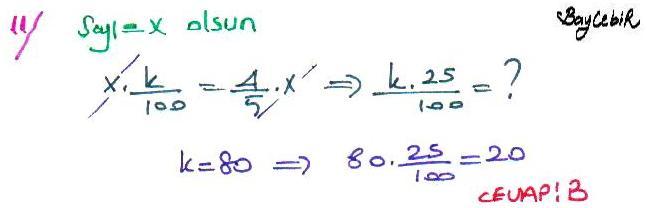 11) Sayı = x olsun
BayCebiR
x . k/100 = 4/5 . x ⇒ k . 25/100 = ?
k = 80 ⇒ 80 . 25/100 = 20
CEVAP: B